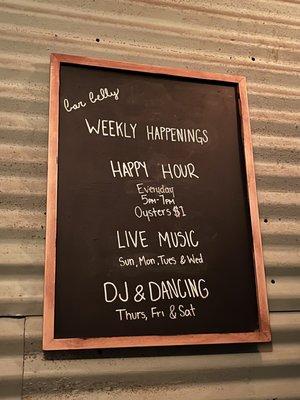 bar belly
WEEKLY HAPPENINGS
HAPPY HOUR
Everyday
5PM-7PM
Oysters $1
LIVE MUSIC
Sun, Mon, Tues & Wed
DJ & DANCING
Thurs, Fri & Sat